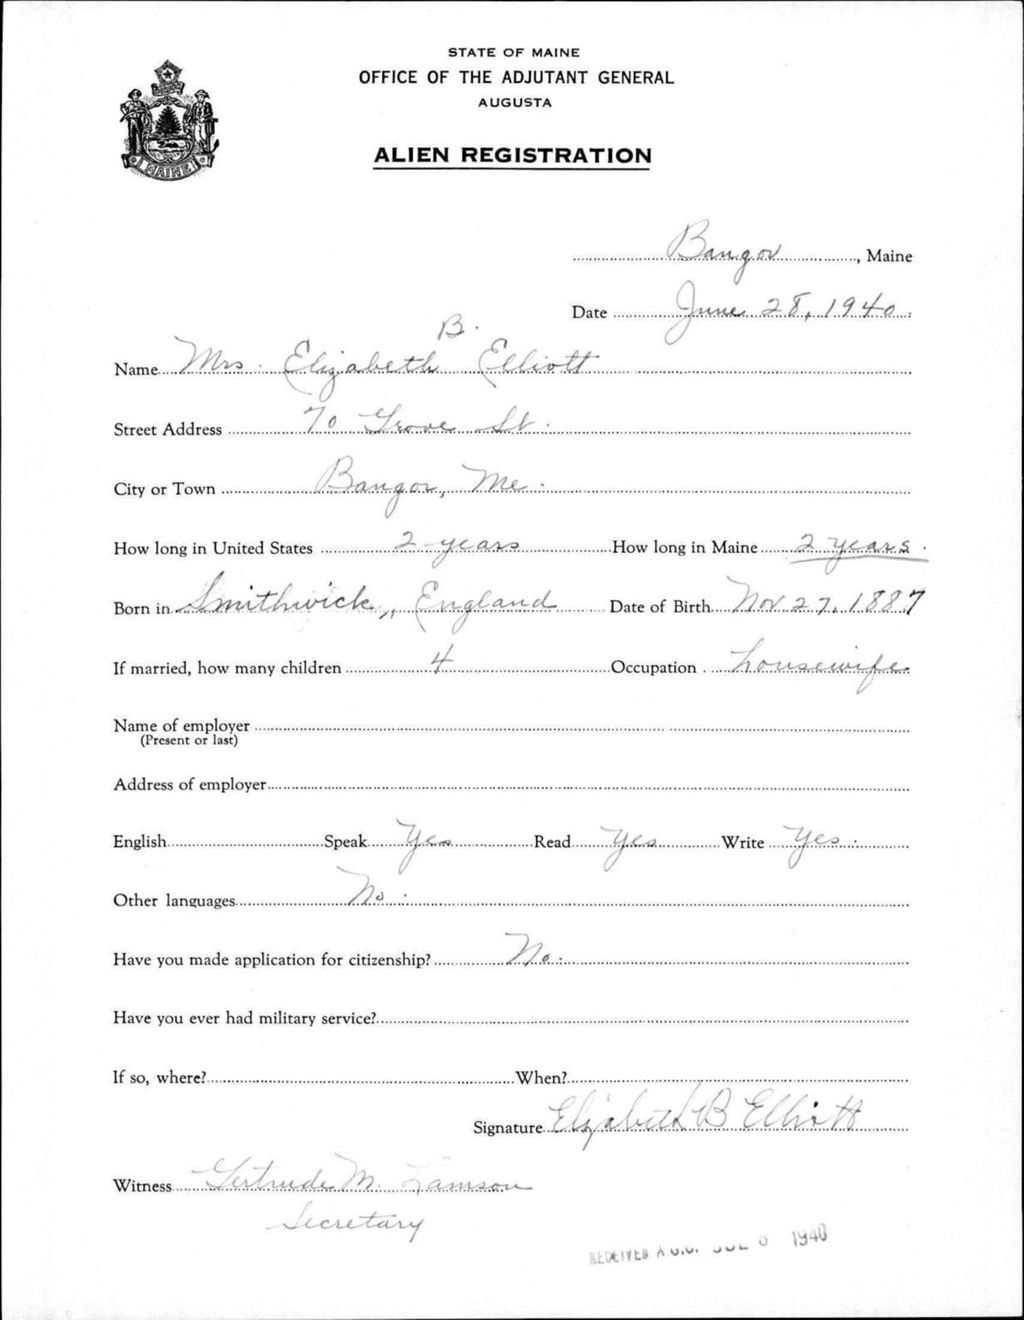 STATE OF MAINE
OFFICE OF THE ADJUTANT GENERAL
AUGUSTA
ALIEN REGISTRATION
MAINE
Bangor, Maine
Date June 28, 1940.
Name Mrs. Elizabeth B. Elliott
Street Address 70 Grove St.
City or Town Bangor, Me.
How long in United States 2 years How long in Maine 2 years.
Born in Smithwick, England Date of Birth Nov 27, 1887
If married, how many children 4 Occupation housewife
Name of employer
(Present or last)
Address of employer
English Speak Yes Read Yes Write Yes.
Other languages No.
Have you made application for citizenship? No.
Have you ever had military service?
If so, where? When?
Signature Elizabeth B Elliott
Witness Gertrude M. Lamson
Secretary
RECEIVED A.G.O. JUL 6 1940